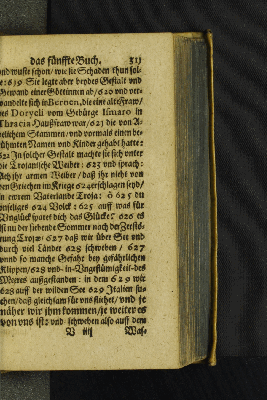 das fünffte Buch. 311
und wuste schon / wie sie Schaden thun sol-
te: 619 Sie legte aber beydes Gestalt und
Gewand einer Göttinnen ab / 620 und ver-
wandelte sich in Beroen, die eine alte Fraw /
des Dorycli vom Gebürge Ismaro in
Thracia Hauß fraw war / 621 die von A-
delichem Stammen / und vormals einen be-
rühmten Namen und Kinder gehabt hatte:
622 In solcher Gestalt machte sie sich unter
die Trojanische Weiber: 623 und sprach:
Ach ihr armen Weiber / daß ihr nicht von
den Griechen im Kriege 624 erschlagen seyd /
in ewrem Vaterlande Troja: ô 625 du
unseliges 624 Volck: 625 auff was für
Unglück spatet dich das Glück? 626 es
ist nu der siebende Sommer nach der Zerstö-
rung Trojæ: 627 daß wir über See und
durch viel Länder 628 schweben / 627
unnd so manche Gefahr bey gefährlichen
Klippen / 628 und in Ungestümigkeit des
Meeres außgestanden: in dem 629 wir
628 auff der wilden See 629 Italien su-
chen / daß gleichsam für uns fliehet / und je
näher wir ihm kommen / je weiter es
von uns ist: und schweben also auff dem
V iiij Was-